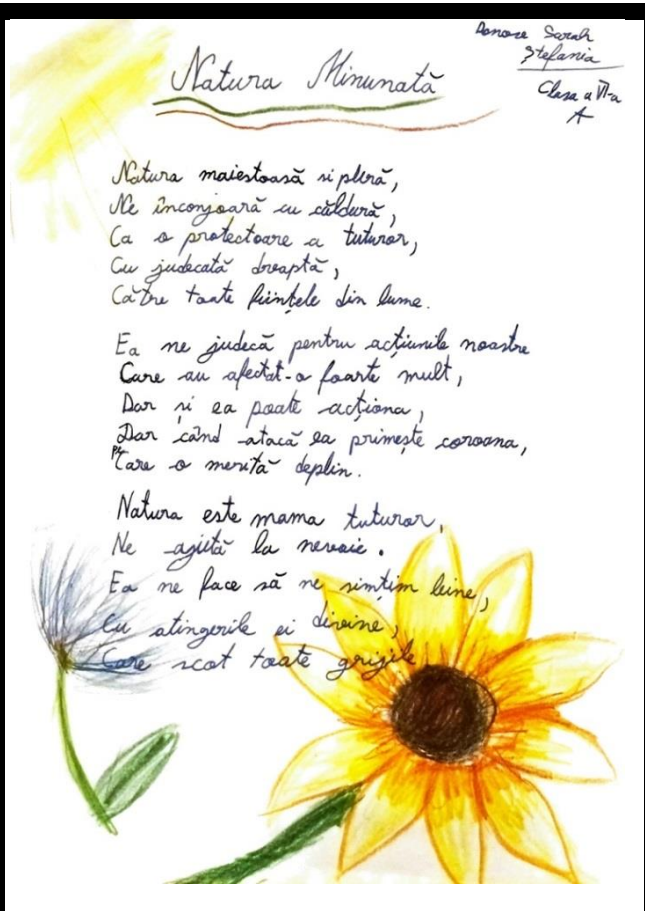 Danore Sarah
Ștefania
Clasa a VI-a
A
Natura Minunată
Natura maiestoasă si plină,
Ne înconjoară cu căldură,
Ca o protectoare a tuturor,
Cu judecată dreaptă,
Către toate ființele din lume.
Ea ne judecă pentru acțiunile noastre
Care au afectat-o foarte mult,
Dar și ea poate acționa,
Dar când atacă ea primește coroana,
pe Care o merită deplin.
Natura este mama tuturor,
Ne ajută la nevoie.
Ea ne face să ne simțim bine,
Cu atingerile ei divine,
Care scot toate grijile